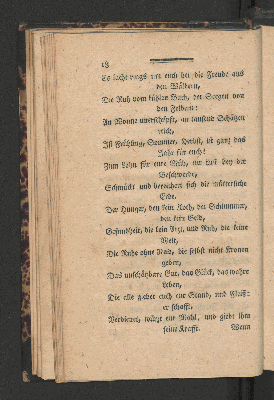 18
Es lacht rings um euch her die Freude aus
den Wäldern,
Die Ruh vom kühlen Bach, der Seegen von
den Feldern!
An Wonne unerschöpft, an tausend Schätzen
reich,
Ist Frühling, Sommer, Herbst, ist ganz das
Jahr für euch!
Zum Lohn für eure Müh, zur Lust bey der
Beschwerde,
Schmückt und bereichert sich die mütterliche
Erde.
Der Hunger, den kein Koch, der Schlummer,
den kein Geld,
Gesundheit, die kein Arzt, und Ruh, die keine
Welt,
Die Ruhe ohne Neid, die selbst nicht Kronen
geben,
Das unschätzbare Gut, das Glück, das wahre
Leben,
Die alle giebet euch eur Stand, und Fleiß
er schafft,
Verdienet, würzt eur Mahl, und giebt ihm
seine Kraft. Wenn